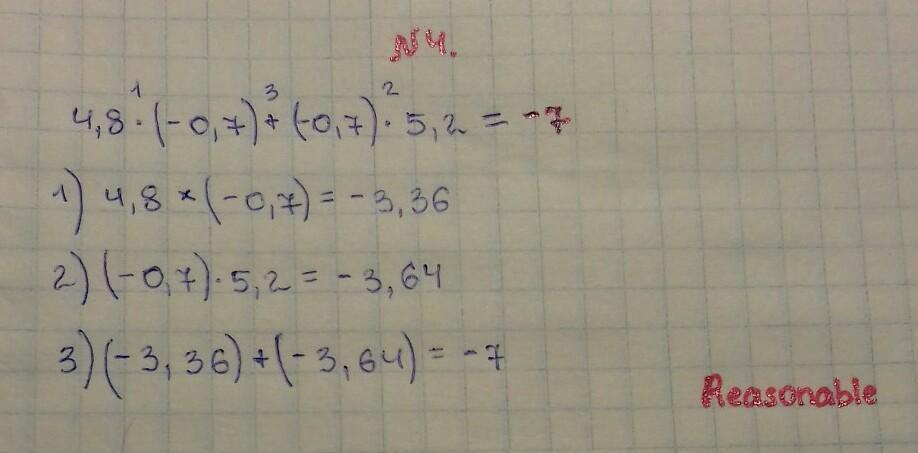 N4.
1 3 2
4,8 · (-0,7) + (-0,7) · 5,2 = -7
1) 4,8 × (-0,7) = -3,36
2) (-0,7) · 5,2 = -3,64
3) (-3,36) + (-3,64) = -7
Reasonable